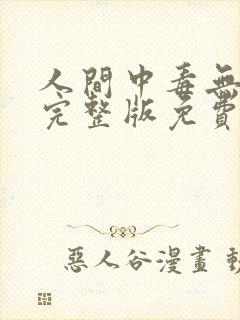 人間中毒無
完整版免費
惡人谷漫畫 動